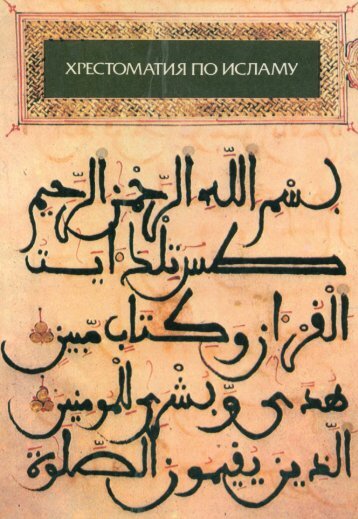 ХРЕСТОМАТИЯ ПО ИСЛАМУ
بِسْمِ اللَّهِ الرَّحْمٰنِ الرَّحِيمِ
طسٓ تلك ءايٰت
الْقُرْءَانِ وَكتَابٍ مُّبِينٍ
هُدًى وَبُشْرٰى لِلْمُومِنِينَ
الَّذِينَ يُقِيمُونَ الصَّلَوٰةَ